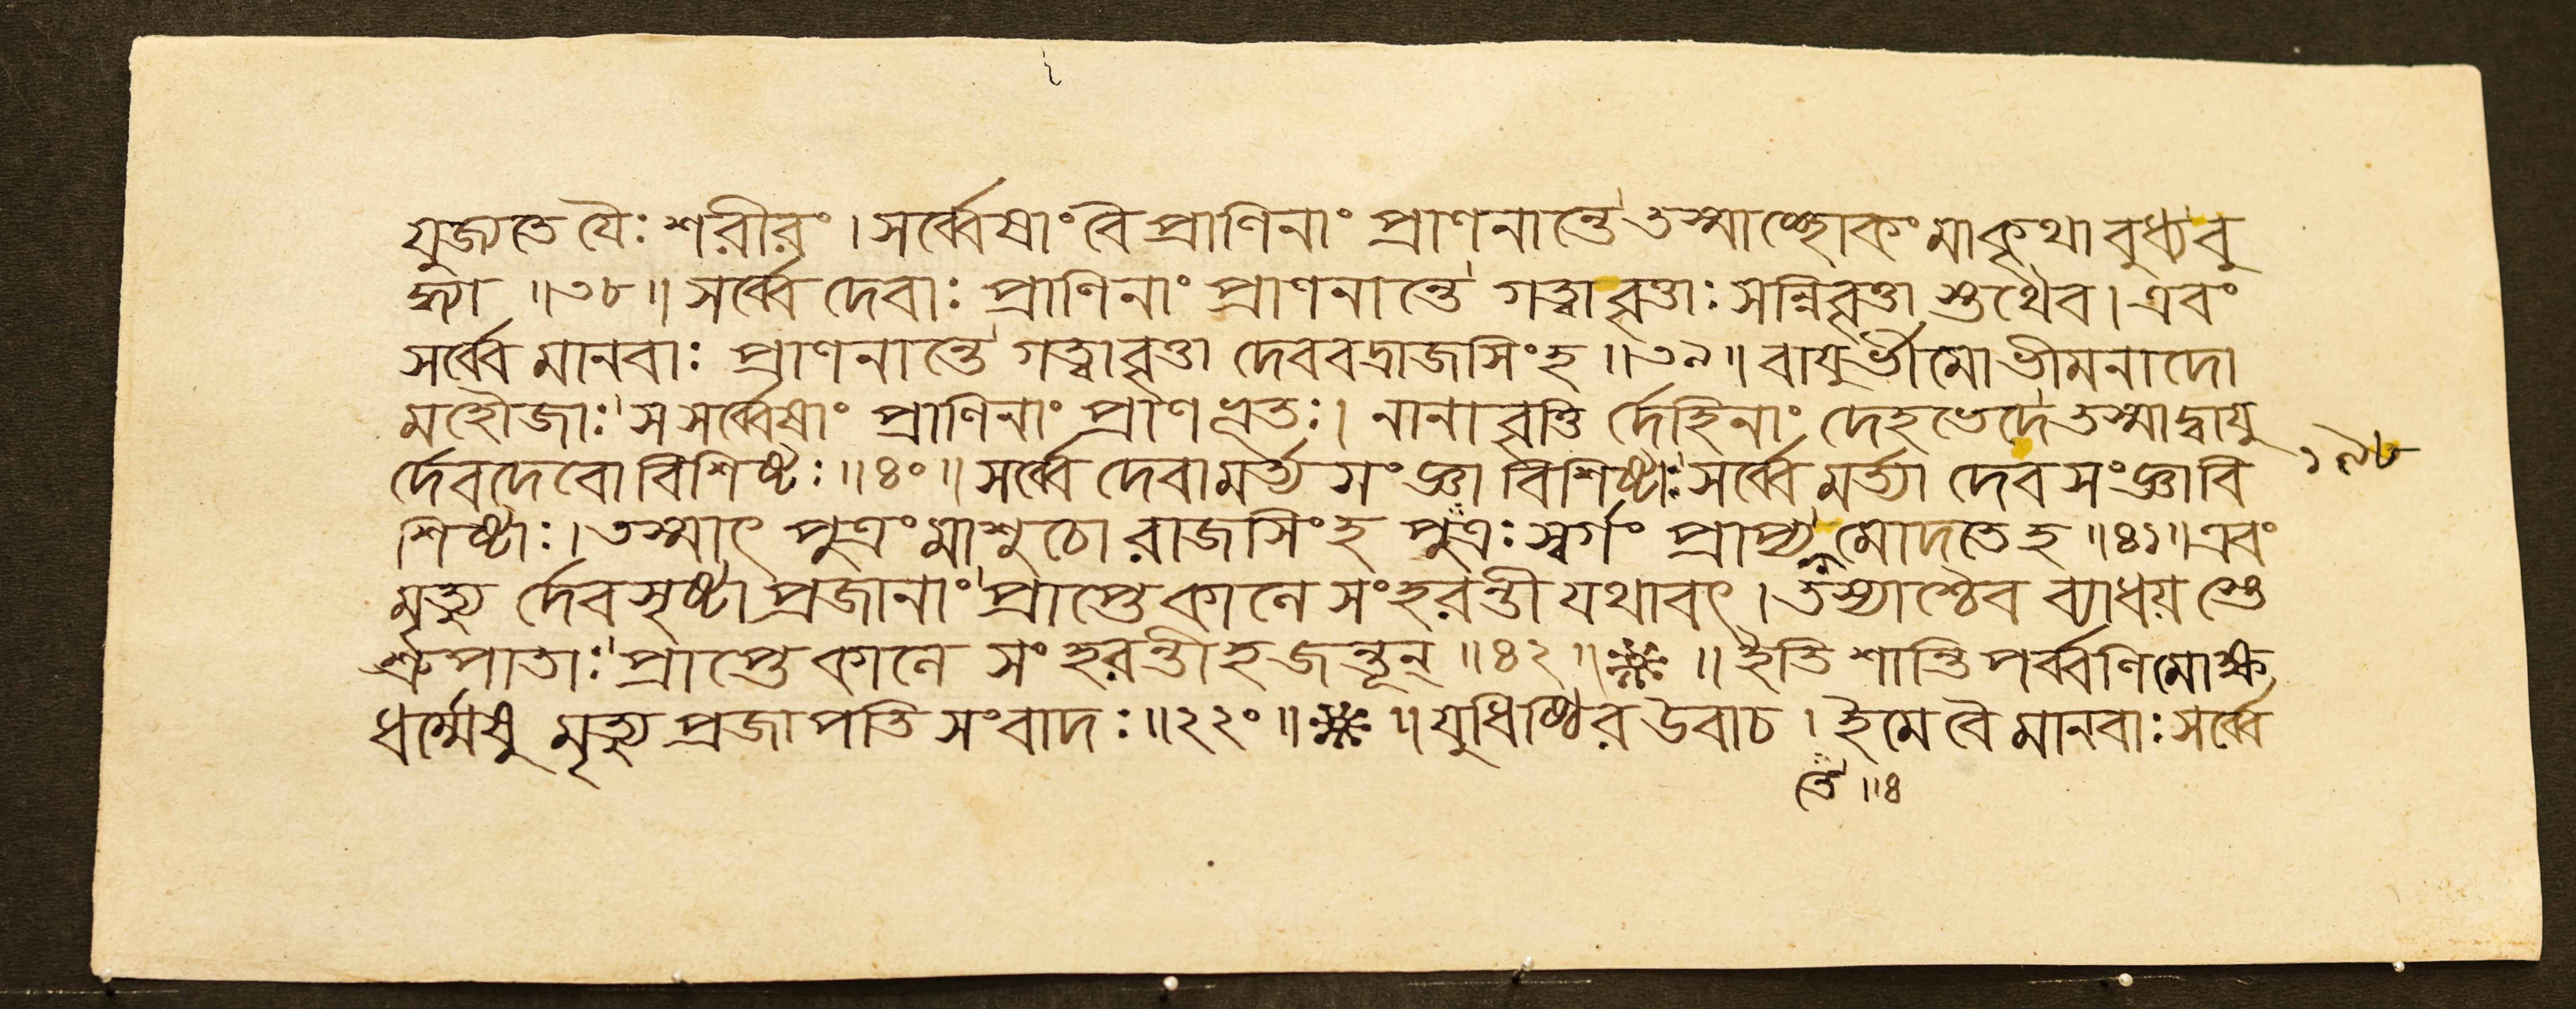 যুজ্যতে যৈঃ শরীরং । সর্ব্বেষাং বৈ প্রাণিনাং প্রাণনান্তে তস্মাচ্ছোকং মাকৃথা বুধ্যবু
দ্ধ্যা ॥৩৮॥ সর্ব্বে দেবাঃ প্রাণিনাং প্রাণনান্তে গত্বাবৃত্তাঃ সন্নিবৃত্তা স্তথৈব । এবং
সর্ব্বে মানবাঃ প্রাণনান্তে গত্বাবৃত্তা দেববদ্রাজসিংহ ॥৩৯॥ বায়ুর্ভীমো ভীমনাদো
মহৌজাঃ স সর্ব্বেষাং প্রাণিনাং প্রাণভূতঃ । নানাবৃত্তি র্দেহিনাং দেহভেদে তস্মাদ্বায়ু
র্দেবদেবো বিশিষ্টঃ ॥৪০॥ সর্ব্বে দেবা মর্ত্য সংজ্ঞা বিশিষ্টাঃ সর্ব্বে মর্ত্যা দেব সংজ্ঞাবি
১৯৮
শিষ্টাঃ । তস্মাৎ পুত্রং মাশুচো রাজসিংহ পুত্রঃ স্বর্গং প্রাপ্য মোদতে হ ॥৪১॥ এবং
মৃত্যু র্দেবসৃষ্টা প্রজানাং প্রাপ্তে কালে সংহরন্তী যথাবৎ । তস্যাশ্চৈব ব্যাধয় স্তে
শ্রুপাতাঃ প্রাপ্তে কালে সংহরন্তীহ জন্তূন্ ॥৪২॥ ॥ ইতি শান্তিপর্ব্বণি মোক্ষ
ধর্ম্মেষু মৃত্যু প্রজাপতি সংবাদঃ ॥২২০॥ ॥ যুধিষ্ঠির উবাচ । ইমে বৈ মানবাঃ সর্ব্বে
তে ॥৪